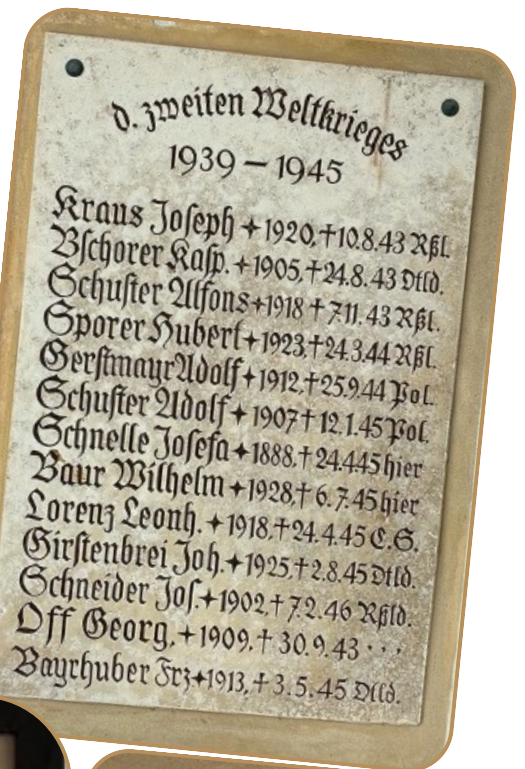 d. zweiten Weltkrieges
1939 – 1945
Kraus Joseph ✦ 1920, † 10.8.43 Rßl.
Bschorer Kasp. ✦ 1905, † 24.8.43 Dtld.
Schuster Alfons ✦ 1918 † 7.11.43 Rßl.
Sporer Hubert ✦ 1923, † 24.3.44 Rßl.
Gerstmayr Adolf ✦ 1912, † 25.9.44 Pol.
Schuster Adolf ✦ 1907 † 12.1.45 Pol.
Schnelle Josefa ✦ 1888, † 24.4.45 hier
Baur Wilhelm ✦ 1928, † 6.7.45 hier
Lorenz Leonh. ✦ 1918, † 24.4.45 C.S.
Girstenbrei Joh. ✦ 1925, † 2.8.45 Dtld.
Schneider Jos. ✦ 1902, † 7.2.46 Rßld.
Off Georg, ✦ 1909, † 30.9.43 . . .
Bayrhuber Frz ✦ 1913, † 3.5.45 Dtld.